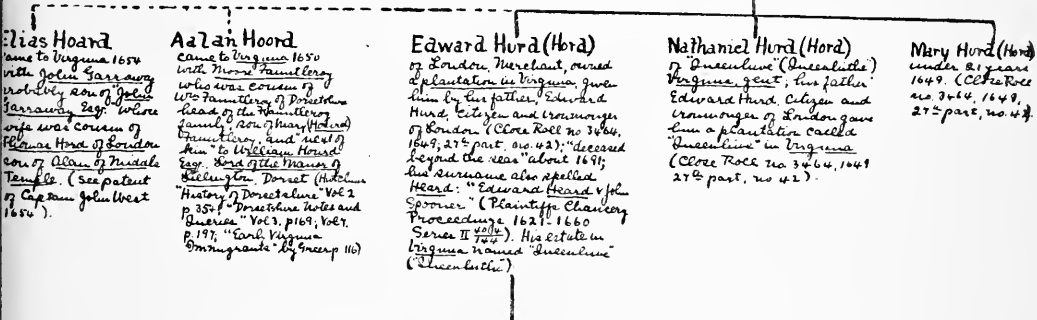 Elias Hoard
came to Virginia 1654
with John Garraway
probably son of "John
Garraway, Esq." whose
wife was cousin of
Thomas Hord of London
son of Alan of Middle
Temple. (See patent
of Captain John West
1654).
Aalan Hoord
came to Virginia 1650
with Moore Fauntleroy
who was cousin of
Wm Fauntleroy of Dorsetshire
head of the Fauntleroy
family, son of Mary (Hourd)
Fauntleroy, and "next of
kin" to William Hourd
Esq. Lord of the Manor of
Lillington, Dorset (Hutchins
"History of Dorsetshire" Vol 2
p. 354; "Dorsetshire Notes and
Queries" Vol 3, p169; Vol 4,
p. 197; "Early Virginia
Immigrants" by Greer p 116)
Edward Hurd (Hord)
of London, Merchant, owned
a plantation in Virginia given
him by his father, Edward
Hurd, Citizen and ironmonger
of London (Close Roll no 3464,
1649; 27th part, no. 42); "deceased
beyond the seas" about 1691;
his surname also spelled
Heard: "Edward Heard v John
Spooner" (Plaintiffs Chancery
Proceedings 1621-1660
Series II 404/144). His estate in
Virginia named "Queenhive"
("Queenhithe")
Nathaniel Hurd (Hord)
of "Queenhive" (Queenhithe)
Virginia, gent; his father
Edward Hurd, Citizen and
ironmonger of London gave
him a plantation called
"Queenhive" in Virginia
(Close Roll no 3464, 1649
27th part, no 42).
Mary Hurd (Hord)
under 21 years
1649. (Close Roll
no. 3464, 1649,
27th part, no. 42.